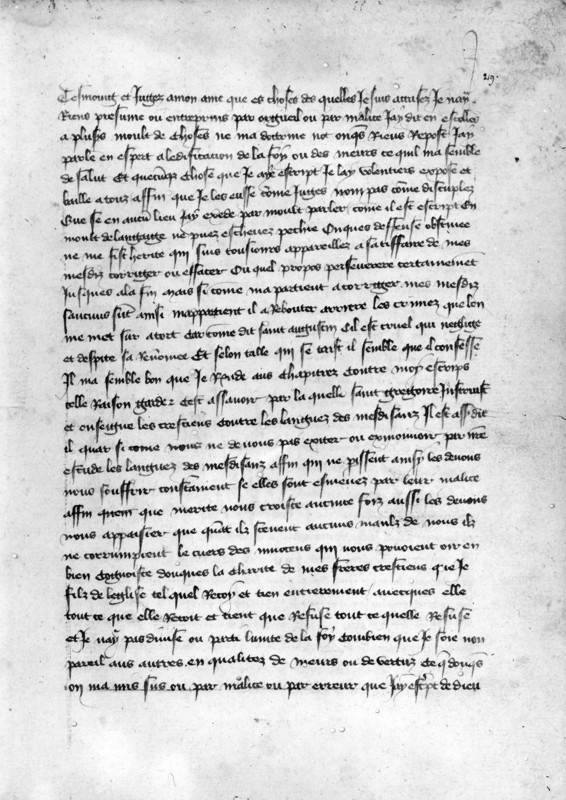 219.
Tesmoing et Juge a mon ame que es choses des quelles Je suis accusez Je nay
Riens presume ou entreprins par orgueil ou par malice Jay dit en escoles
a pluss moult de choses ne ma doctrine not onqs Riens Repost Jay
parle en espert a ledificacion de la foy ou des meurs ce quil ma semble
de salut Et quecuqz chose que Je aye escript Je lay volentiers expose et
baille a touz affin que Je les eusse come Juges nom pas come disciples
Que se en aucu lieu Jay exede par moult parler come il est escript En
moult de langaige ne puez eschevez pechie Onques deffense obstinee
ne me fist herite qui suis tousjours appareillez a satiffaire de mes
mesdiz corriger ou effacer Ou quel propos perseverere certainemet
Jusques a la fin mais si come ma partient a corriger mes mesdiz
saucuns sut ainsi mappartient il a Rebouter arriere les crimez que len
me met sur a tort Car come dit saint augustin Cil est cruel qui neglige
et despite sa Renomee Et selon tulle qui se taist il semble que il confesse
Il ma semble bon que Je Ronde aus chapitrez contre moy escrips
celle Raison gardee cest assavoir par la quelle saint gregoire Instruist
et enseigne les crestiens contre les languez des mesdisanz Il est assi dit
il quar si come nous ne devons pas exiter ou exmouvoir par nre
estude les languez des mesdisanz affin qui ne pissent ainsy les devons
nous souffrir constament se elles sont esmeuez par leur malice
affin quem que merite nous croisse aucune foiz aussi les devons
nous appaisier que quat ilz scevent aucuns maulz de nous ilz
ne corrumpient le cuers des innocens qui nous povoient oir en
bien Cognoisse donques la charite de mes freres crestiens que Je
filz de leglise tel quel Recoy et tien entierement avecques elle
tout ce que elle Recoit et tient que Refuse tout ce quelle Refuse
et Je nay pas divise ou parti lunite de la foy combien que Je soie non
pareil aus autres en qualitez de meurs ou de vertuz Ce q donqs
on ma mis sus ou par malice ou par erreur que Jay escript de dieu